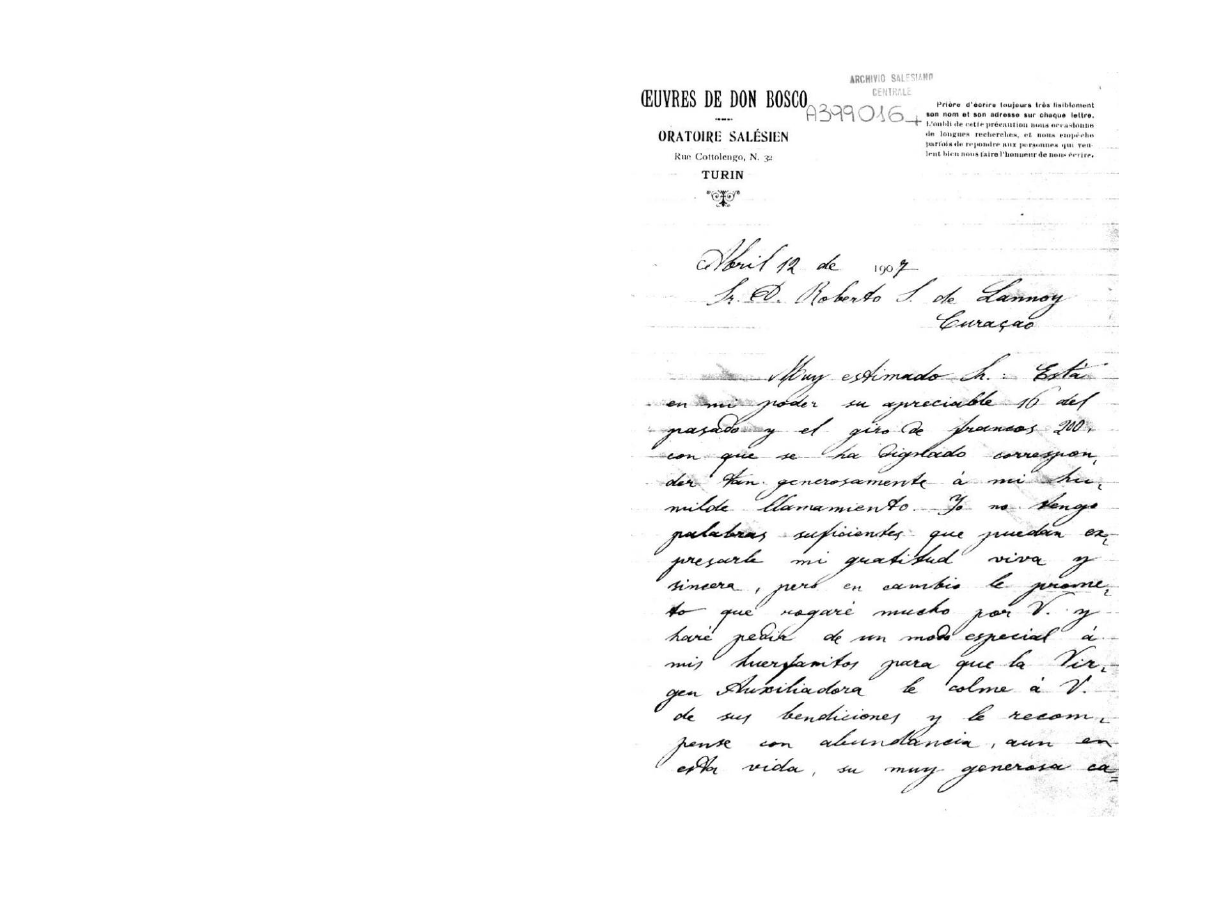 ARCHIVIO SALESIANO
CENTRALE
ŒUVRES DE DON BOSCO
A399016
ORATOIRE SALÉSIEN
Rue Cottolengo, N. 32
TURIN
Prière d'écrire toujours très lisiblement
son nom et son adresse sur chaque lettre.
L'oubli de cette précaution nous occasionne
de longues recherches, et nous empêche
parfois de repondre aux personnes qui veu-
lent bien nous faire l'honneur de nous écrire.
Abril 12 de 1907
Sr. D. Roberto S. de Lannoy
Curaçao
Muy estimado Sr. : Está
en mi poder su apreciable 16 del
pasado y el giro de francos 200.
con que se ha dignado correspon-
der tan generosamente á mi hu-
milde llamamiento. Yo no tengo
palabras suficientes que puedan ex-
presarle mi gratitud viva y
sincera, pero en cambio le prome-
to que rogaré mucho por V. y
haré pedir de un modo especial á
mis huerfanitos para que la Vir-
gen Auxiliadora le colme á V.
de sus bendiciones y le recom-
pense con abundancia, aun en
esta vida, su muy generosa ca=